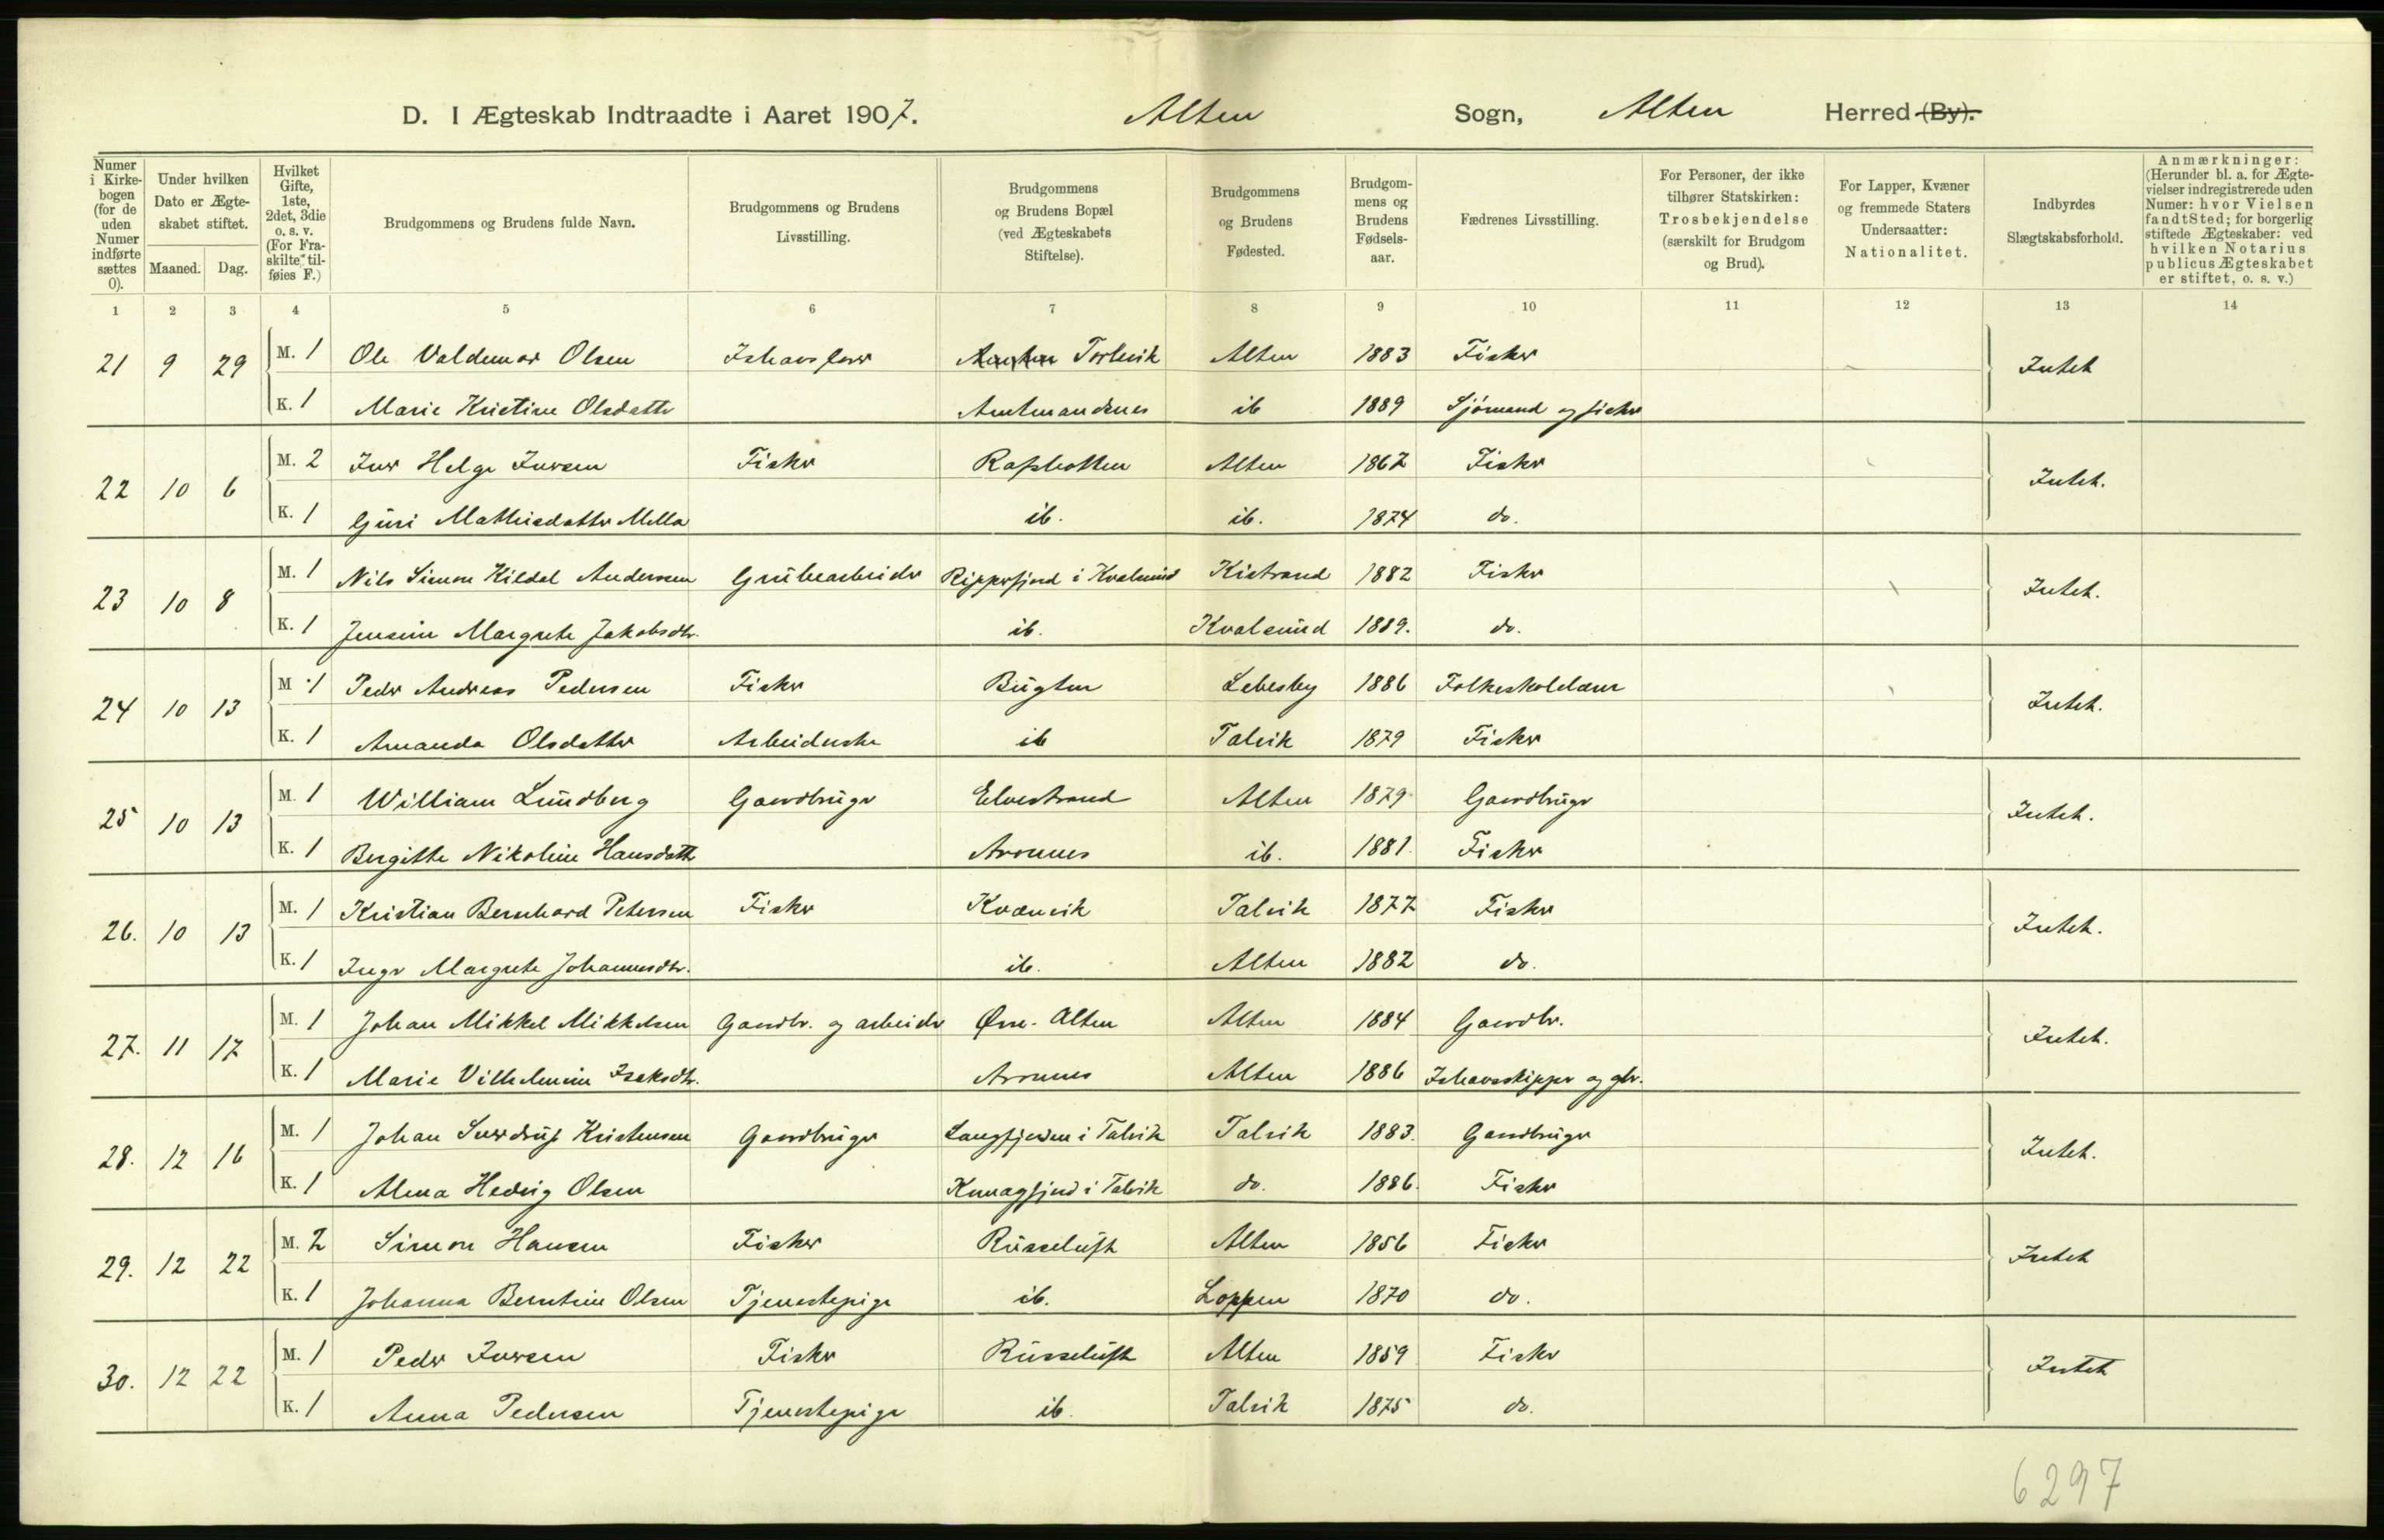 D. I Ægteskab Indtraadte i Aaret 1907. Alten Sogn, Alten Herred (By).
Numer i Kirkebogen (for de uden Numer indførte sættes 0).
Under hvilken Dato er Ægteskabet stiftet.
Maaned. Dag.
Hvilket Gifte, 1ste, 2det, 3die o. s. v. (For Fraskilte tilføies F.)
Brudgommens og Brudens fulde Navn.
Brudgommens og Brudens Livsstilling.
Brudgommens og Brudens Bopæl (ved Ægteskabets Stiftelse).
Brudgommens og Brudens Fødested.
Brudgommens og Brudens Fødselsaar.
Fædrenes Livsstilling.
For Personer, der ikke tilhører Statskirken: Trosbekjendelse (særskilt for Brudgom og Brud).
For Lapper, Kvæner og fremmede Staters Undersaatter: Nationalitet.
Indbyrdes Slægtskabsforhold.
Anmærkninger: (Herunder bl. a. for Ægtevielser indregistrerede uden Numer: hvor Vielsen fandt Sted; for borgerlig stiftede Ægteskaber: ved hvilken Notarius publicus Ægteskabet er stiftet, o. s. v.)
1 2 3 4 5 6 7 8 9 10 11 12 13 14
21 9 29 M. 1 Ole Valdemar Olsen Ishavsfarer Alten 1883 Fisker Intet
K. 1 Marie Kristine Olsdatter Amtmandsnes ib 1889 Sjømand og fisker
22 10 6 M. 2 Iver Helge Iversen Fisker Rafsbotten Alten 1867 Fisker Intet.
K. 1 Guri Mathisdatter Mella ib. ib. 1874 do.
23 10 8 M. 1 Nils Simon Kildal Anderssen Grubearbeider Repperfjord i Kvalsund Kistrand 1882 Fisker Intet.
K. 1 Jensine Margrete Jakobsdtr. ib. Kvalsund 1889. do.
24 10 13 M 1 Peder Andreas Pedersen Fisker Bugten Lebesby 1886 Folkeskolelærer Intet.
K. 1 Amanda Olsdatter Arbeiderske ib Talvik 1879 Fisker
25 10 13 M. 1 William Lundberg Gaardbruger Elvestrand Alten 1879 Gaardbruger Intet.
K. 1 Bergitte Nikoline Hansdatter Aronnes ib. 1881. Fisker
26. 10 13 M. 1 Kristian Bernhard Petersen Fisker Kvænvik Talvik 1877 Fisker Intet.
K. 1 Inger Margrete Johannesdtr. ib. Alten 1882 do.
27. 11 17 M. 1 Johan Mikkel Mikkelsen Gaardbr. og arbeider Øvre-Alten Alten 1884 Gaardbr. Intet.
K. 1 Marie Vilhelmine Isaksdtr. Aronnes Alten 1886 Ishavsskipper og gbr.
28. 12 16 M. 1 Johan Sverdrup Kristensen Gaardbruger Langfjorden i Talvik Talvik 1883. Gaardbruger Intet.
K. 1 Alma Hedvig Olsen i Talvik do. 1886. Fisker
29. 12 22 M. 2 Simon Hansen Fisker Russeluft Alten 1856 Fisker Intet
K. 1 Johanna Berntine Olsen Tjenestepige ib. Loppen 1870 do.
30. 12 22 M. 1 Peder Iversen Fisker Russeluft Alten 1859 Fisker Intet
K. 1 Anna Pedersen Tjenestepige ib. Talvik 1875 do.
6297